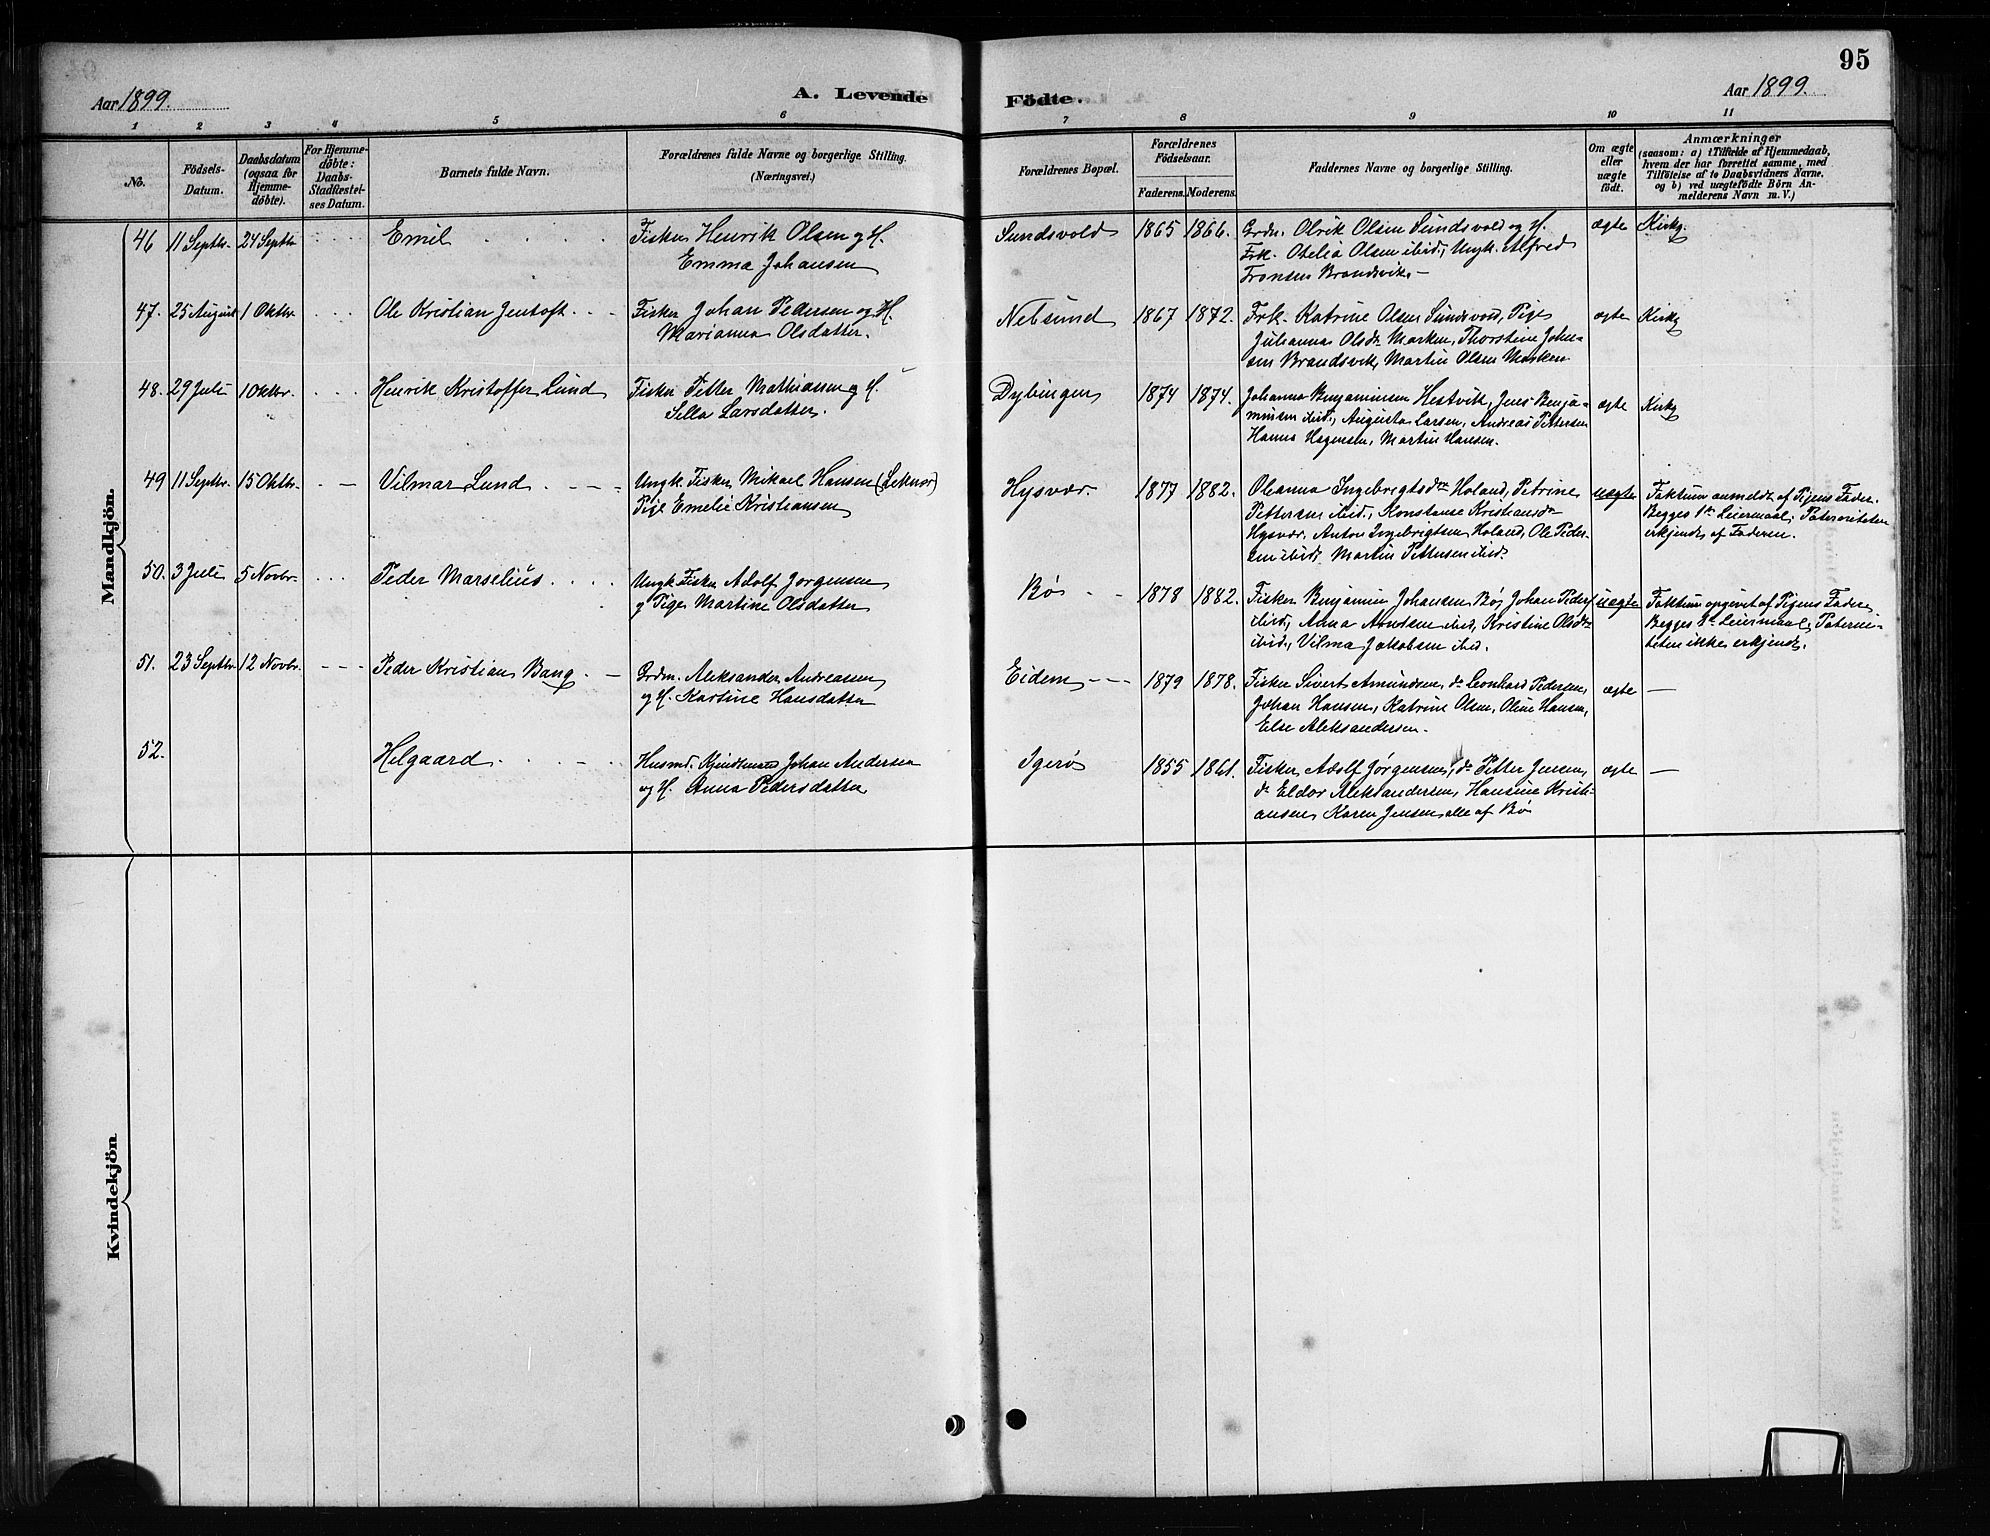 95
Aar 1899.
A. Levende
Födte.
Aar 1899.
1 2 3 4 5 6 7 8 9 10 11
No.
Födsels-
Datum.
Daabsdatum
(ogsaa for
Hjemme-
døbte).
For Hjemme-
døbte:
Daabs-
Stadfæstel-
ses Datum.
Barnets fulde Navn.
Forældrenes fulde Navne og borgerlige Stilling.
(Næringsvei.)
Forældrenes Bopæl.
Forældrenes
Födselsaar.
Faderens.
Moderens.
Faddernes Navne og borgerlige Stilling.
Om ægte
eller
uægte
födt.
Anmærkninger
(saasom: a) i Tilfælde af Hjemmedaab,
hvem der har forrettet samme, med
Tilföielse af to Daabsvidners Navne,
og b) ved uægtefödte Börn An-
melderens Navn m. V.)
Mandkjön.
46 11 Septbr. 24 Septbr Emil
Fisker Henrik Olsen og H.
Emma Johansen
Sundsvold 1865 1866.
Grdm. Olrik Olsen Sundsvold og H.
Frk. Otelia Olsen ibid., Ungk. Alfred
Fronsen Brandsvik.
ægte Kirkg.
47. 25 August 1 Oktbr. Ole Kristian Jentoft
Fisker Johan Pedersen og H.
Marianna Olsdatter.
Nebsund 1867 1872.
Frk. Katrine Olsen Sundsvold, Pige
Julianna Olsdr Marken, Thorstine Johan-
sen Brandsvik, Martin Olsen Marken
ægte Kirkg
48. 29 Juli 1 Oktbr. Henrik Kristoffer Lund
Fisker Petter Mathiassen og H.
Sella Larsdatter.
Dybingen 1874 1874.
Johanna Benjaminsen Hestvik, Jens Benja-
minsen ibid., Augusta Larsen, Andreas Pettersen
Hanna Hagensen, Martin Hansen.
ægte Kirkg
49 11 Septbr. 15 Oktbr. Vilmar Lund
Ungk. Fisker Mikael Hansen (Leknes)
Pige Emelie Kristiansen
Hysvær. 1877 1882.
Oleanna Ingebrigtsdr Holand, Petrine
Pettersen ibid., Konstanse Kristiansdr
Hysvær, Anton Ingebrigtsen Holand, Ole Peder-
sen ibid, Martin Pettersen ibid.
uægte
Faktum anmeldt af Pigens Fader.
Begges 1ste Leiermaal; Paterniteten
erkjendt af Faderen.
50. 3 Juli 5 Novbr. Peder Marselius
Ungk. Fisker Adolf Jørgensen
og Pige Martine Olsdatter
Bø 1878 1882.
Fisker Benjamin Johansen Bø, Johan Peders.
ibid, Anna Arndsen ibid, Kristine Olsdr
ibid., Vilma Jakobsen ibid.
uægte
Faktum opgivet af Pigens Fader.
Begges 1ste Leiermaal; Paterni-
teten ikke erkjendt.
51. 23 Septbr 12 Novbr. Peder Kristian Bang
Grdm. Aleksander Andreassen
og H. Kartine Hansdatter
Eidem 1879 1878.
Fisker Sivert Amundsen, do Leonhard Pedersen,
Johan Hansen, Katrine Olsen, Oline Hansen,
Else Aleksandersen.
ægte
52. Helgaard
Husmd. Johan Andersen
og H. Anna Pedersdatter
Igerø 1855 1861.
Fisker Adolf Jørgensen, do Petter Jensen,
do Eldor Aleksandersen, Hansine Kristi-
ansen, Karen Jensen alle af Bø
ægte
Kvindekjön